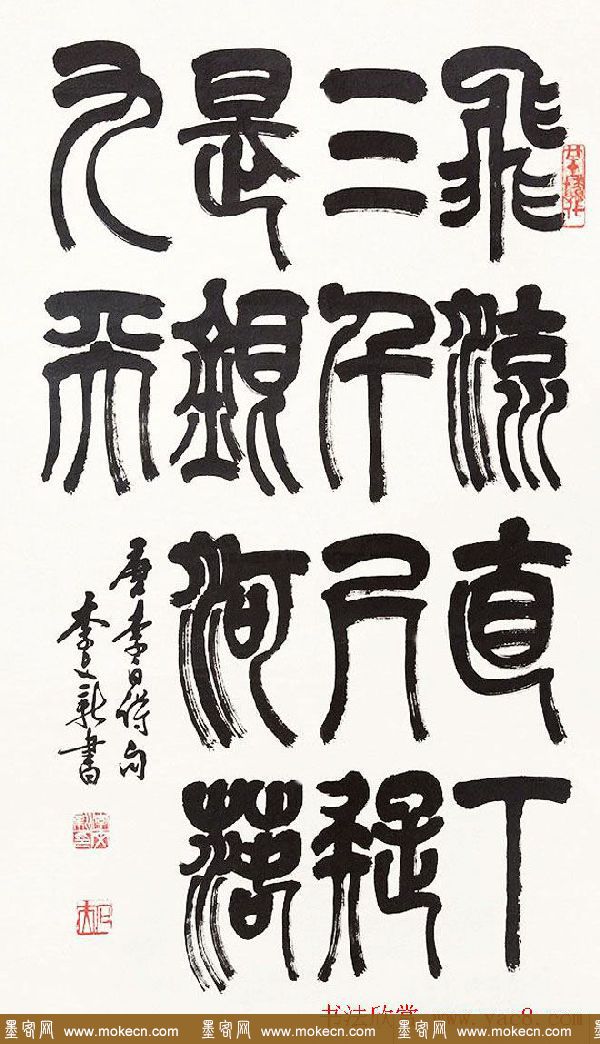 飛流直下
三千尺疑
是銀河落
九天
唐李白詩句
李文新書
书法欣赏 www.yac8.
墨客网 www.mokecn.com 墨客网 www.mokecn.com 墨客网 www.mokecn.com